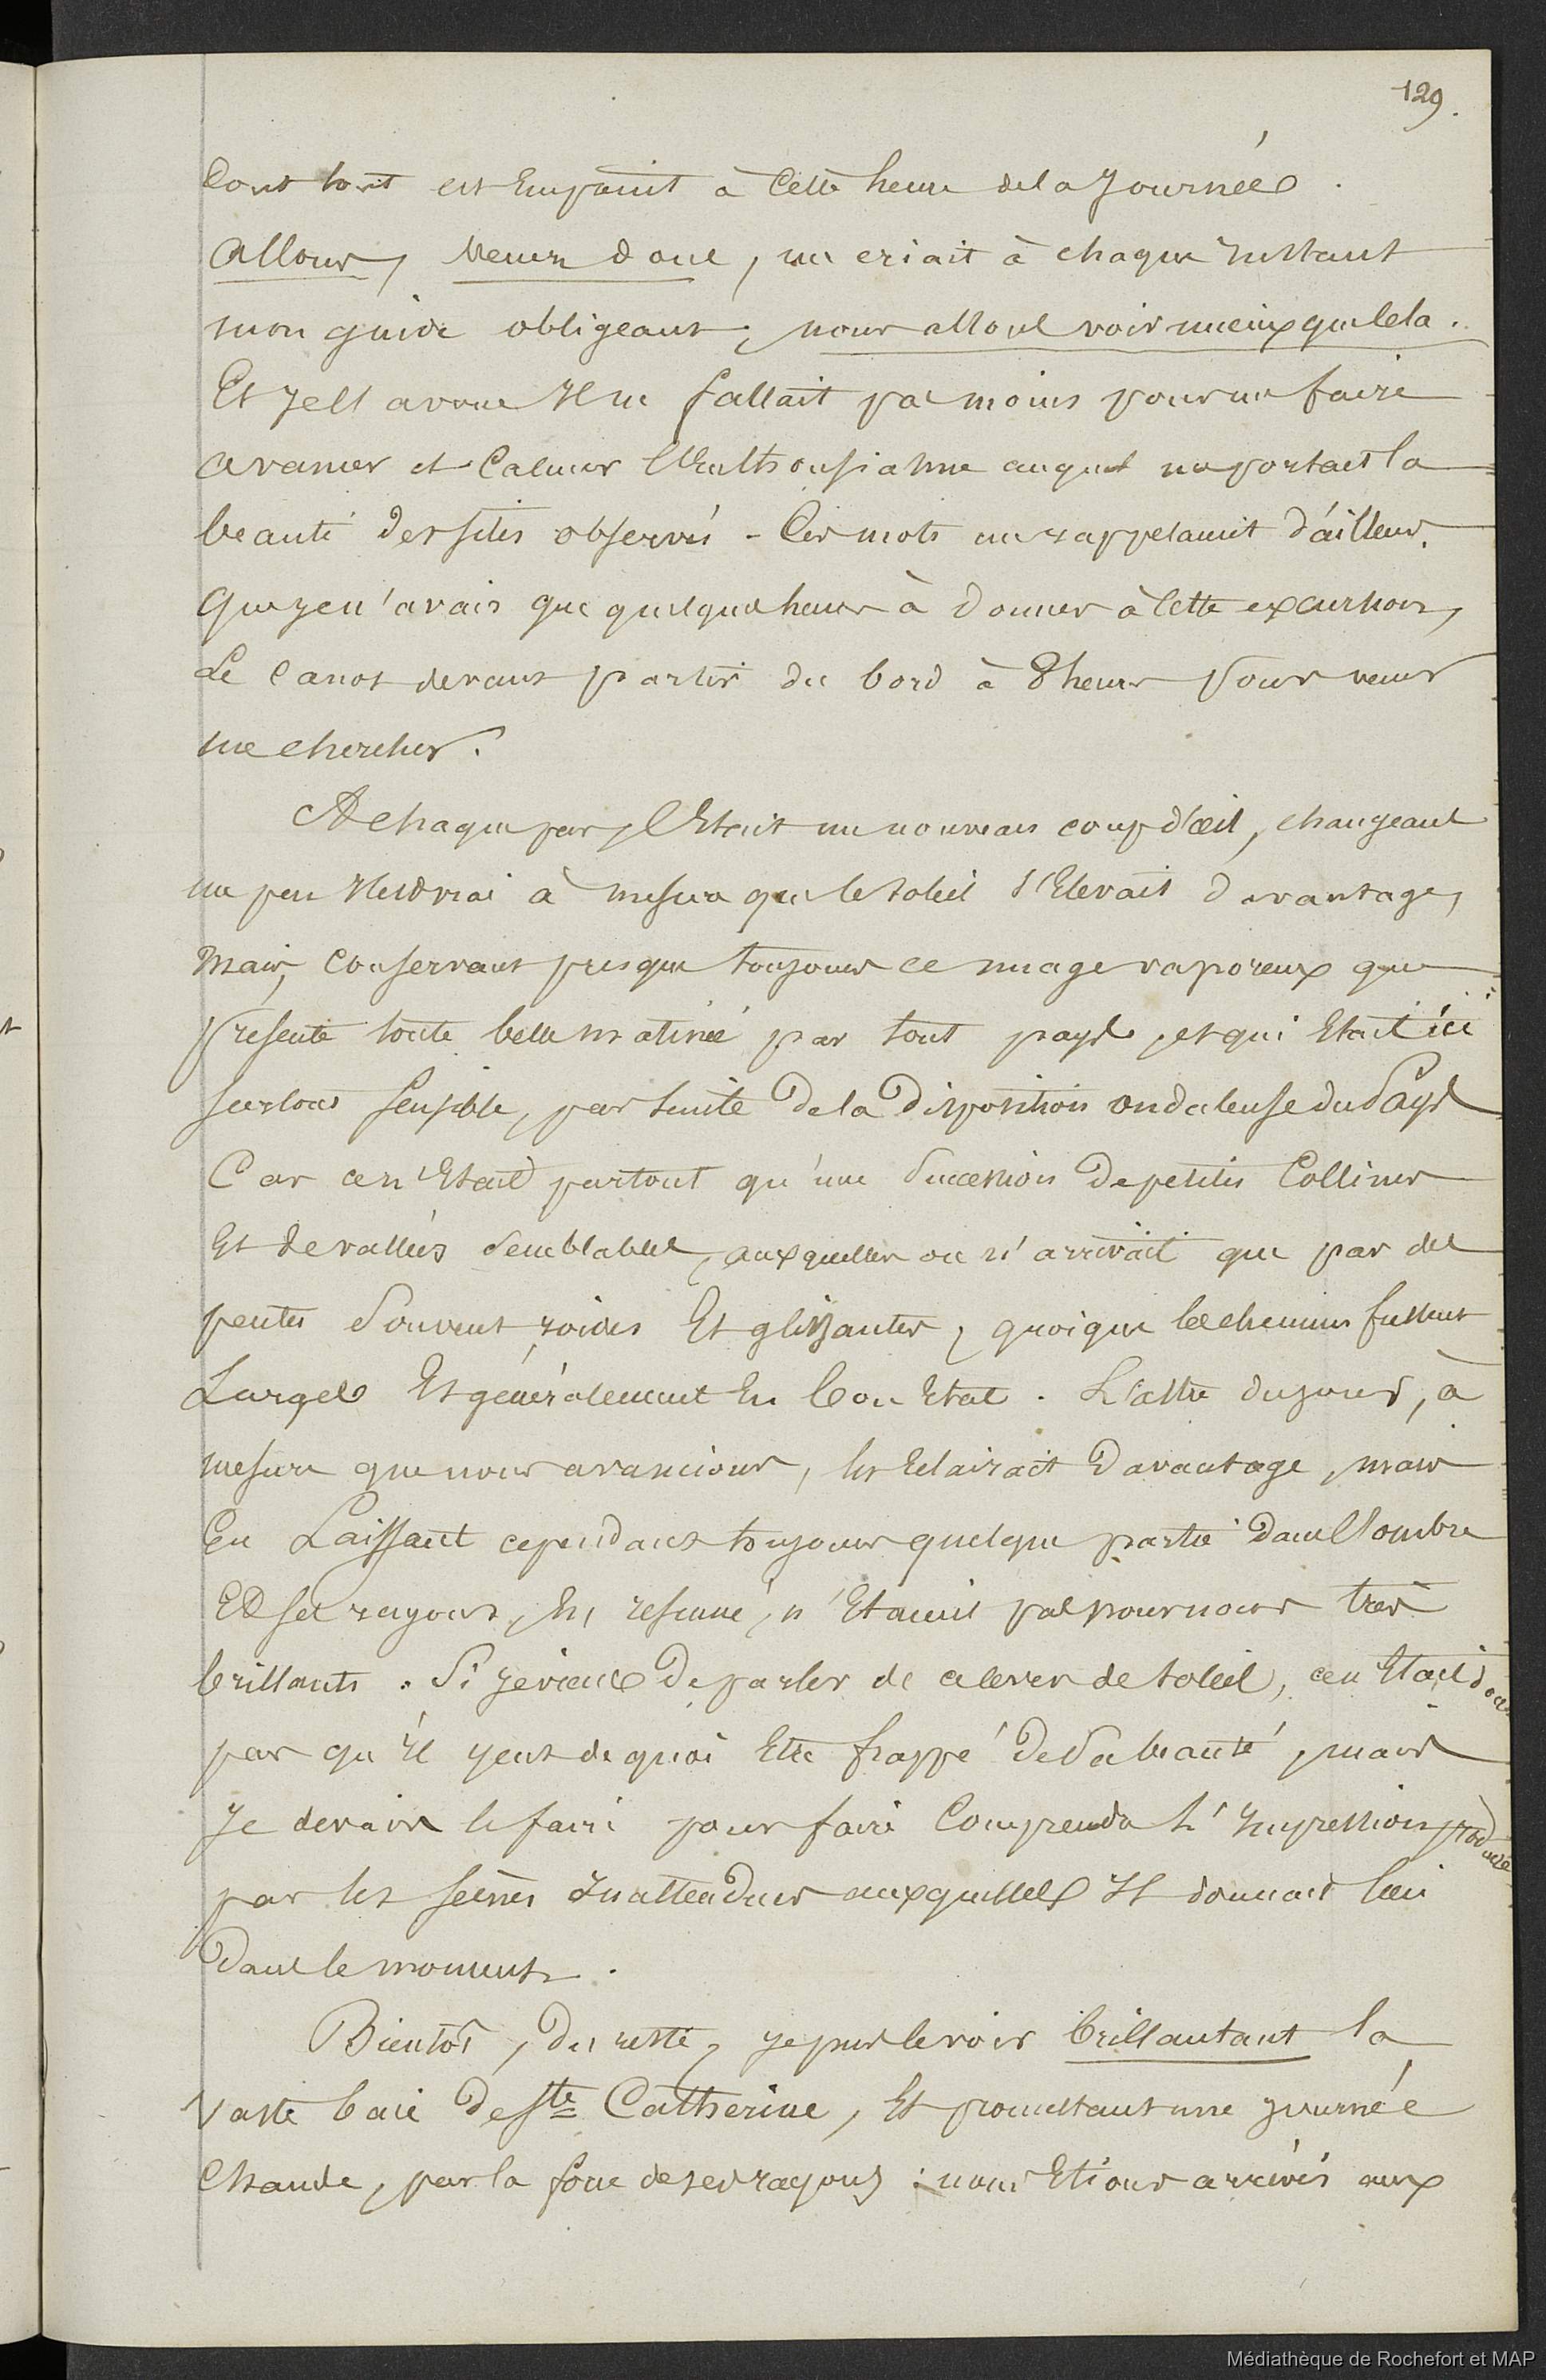 129.
dont tout est empreint à cette heure de la journée.
allons, venez donc, me criait à chaque instant
mon guide obligeant, nous allons voir mieux que cela.
Et je l'avoue il ne fallait pas moins pour me faire
avancer et calmer l'enthousiasme auquel me portait la
beauté des sites observés - Ces mots me rappelaient d'ailleurs
que je n'avais que quelques heures à donner à cette excursion,
Le canot devant partir du bord à 8 heures pour venir
me chercher.
A chaque pas, c'était un nouveau coup d'œil, changeant
un peu il est vrai à mesure que le soleil s'élevait davantage,
mais, conservant presque toujours ce nuage vaporeux que
présente toute belle matinée par tout pays, et qui était ici
surtout sensible, par suite de la disposition onduleuse du pays
Car ce n'était partout qu'une succession de petites collines
et de vallées semblables, auxquelles on n'arrivait que par des
pentes souvent roides et glissantes, quoique les chemins fussent
Larges et généralement en bon état. L'astre du jour, à
mesure que nous avancions, les éclairait davantage, mais
en laissant cependant toujours quelque partie dans l'ombre
Et ses rayons, en résumé, n'étaient pas pour nous très
brillants. Si je viens de parler de ce lever de soleil, ce n'était donc
pas qu'il y eut de quoi être frappé de sa beauté, mais
Je devais le faire pour faire comprendre l'impression produite
par les scènes inattendues auxquelles il donnait lieu
dans le moment.
Bientôt, du reste, je pus le voir brillantant la
vaste baie de Ste Catherine, et promettant une journée
chaude, par la force de ses rayons : nous étions arrivés aux
Médiathèque de Rochefort et MAP